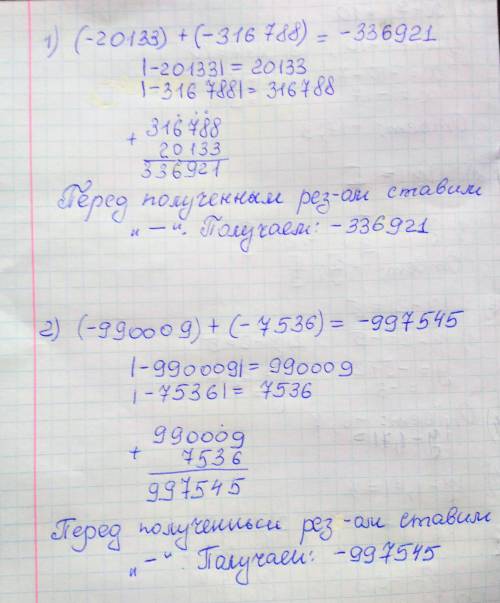 1) (-20133) + (-316 788) = -336921
|-20133| = 20133
|-316 788| = 316788
+ 316788
20133
336921
Перед полученным рез-ом ставим
„ — “. Получаем: -336921
2) (-990009) + (-7536) = -997545
|-990009| = 990009
|-7536| = 7536
+ 990009
7536
997545
Перед полученным рез-ом ставим
„ — “. Получаем: -997545